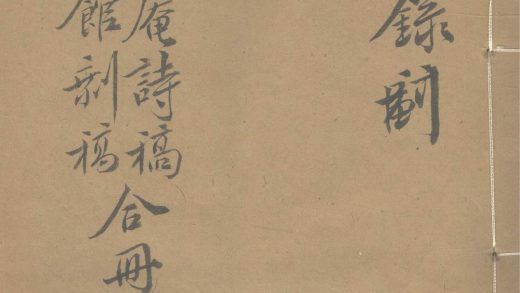 錄副
庵詩稿
館剩稿
合冊